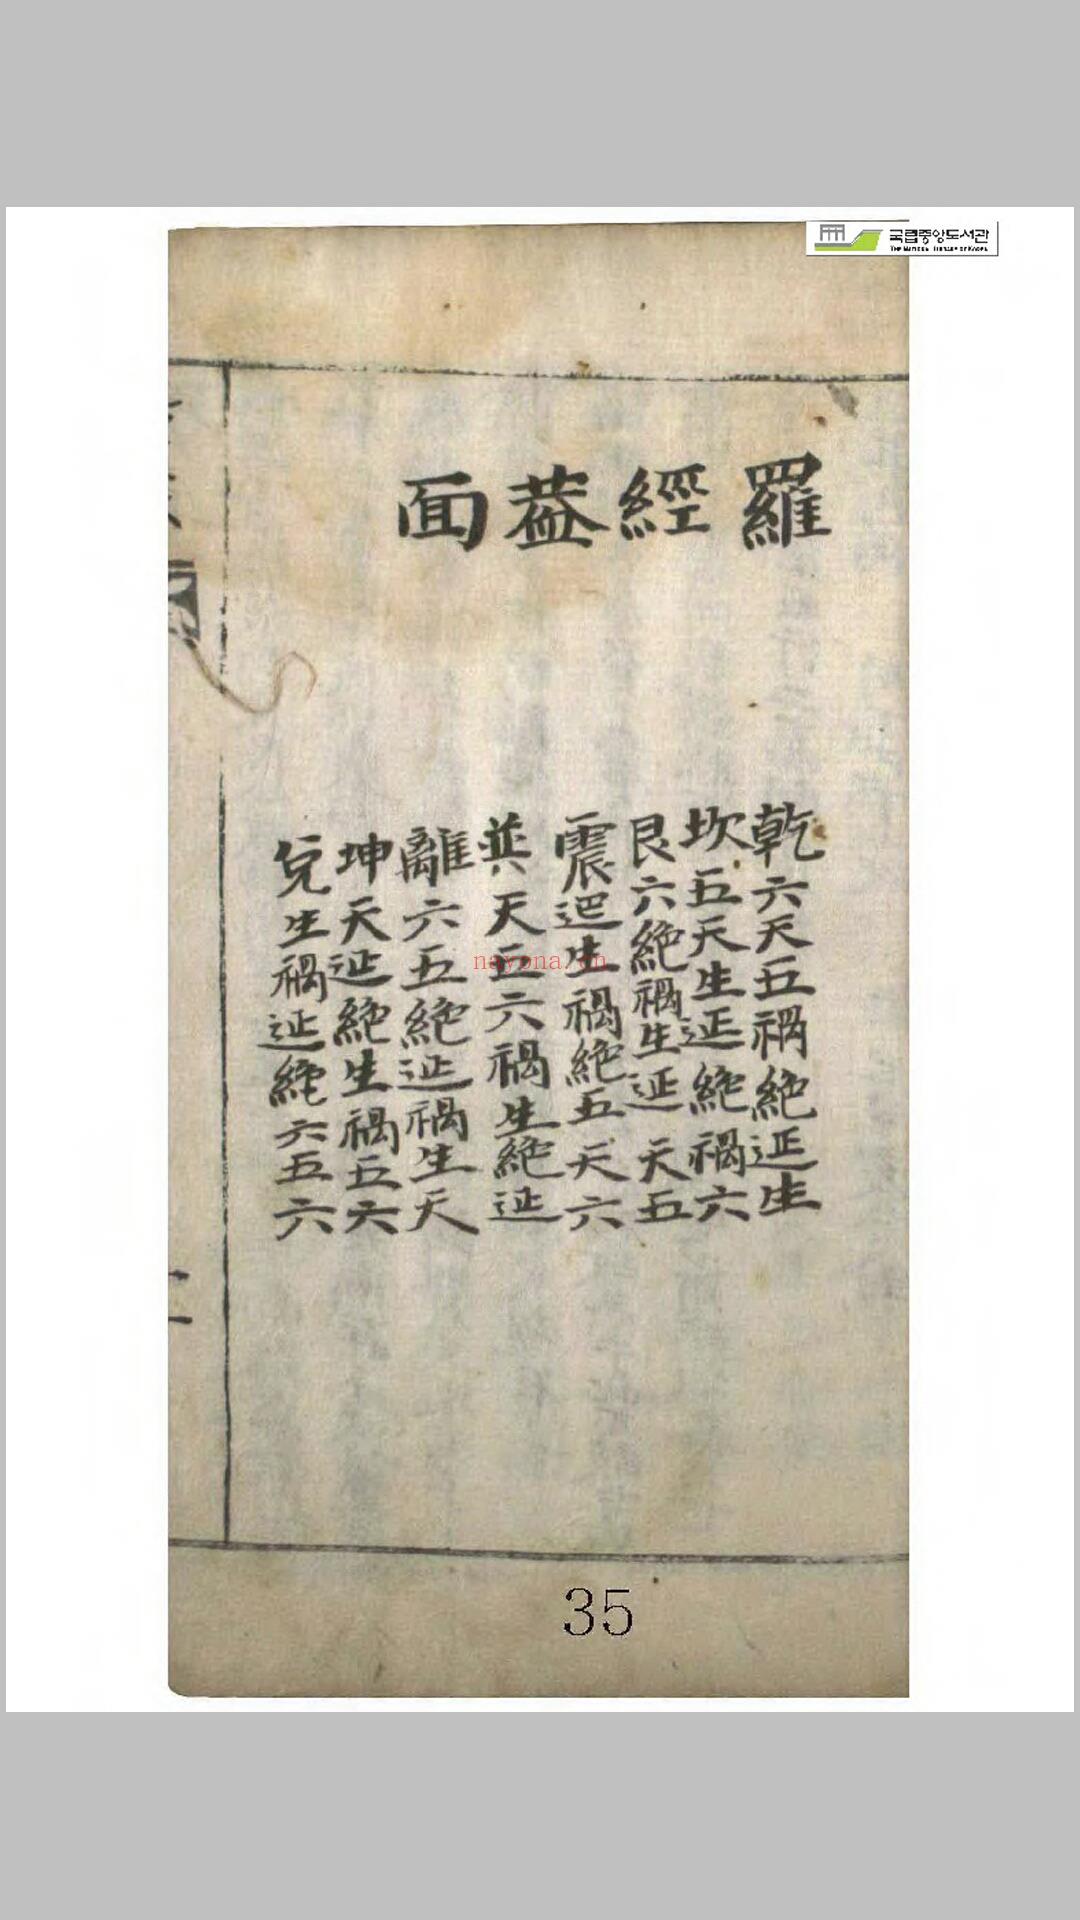 국립중앙도서관
THE NATIONAL LIBRARY OF KOREA
羅經葢面
乾六天五禍絶延生
坎五天生延絶禍六
艮六絶禍生延天五
震延生禍絶五天六
巽天五六禍生絶延
離六五絶延禍生天
坤天延絶生禍五六
兌生禍延絶六五六
nayona.cn
35